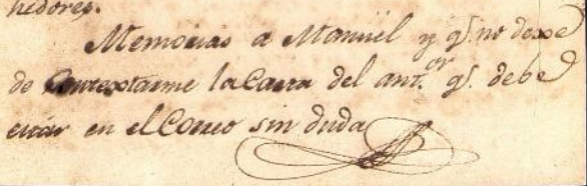 hedores.
Memorias a Manuel y q.e no dexe
de Contextarme la Carta del ant.or q.e debe
estar en el Correo sin duda